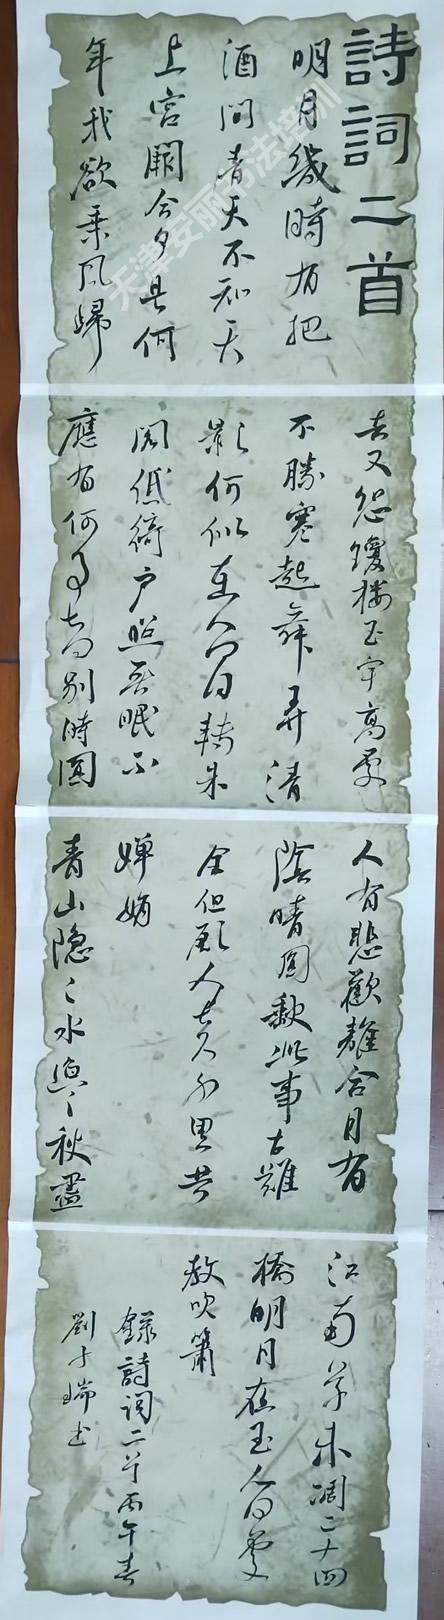 詩詞二首
明月幾時有把
酒問青天不知天
上宮闕今夕是何
年我欲乘风歸
去又恐瓊樓玉宇高處
不勝寒起舞弄清
影何似在人間轉朱
閣低綺户照無眠不
應有何事長向别時圓
人有悲歡離合月有
陰晴圓缺此事古難
全但願人長久千里共
嬋娟
青山隐々水迢々秋盡
江南草未凋二十四
橋明月夜玉人何處
教吹簫
錄詩詞二首丙午春
劉士瑞书
天津安丽书法培训